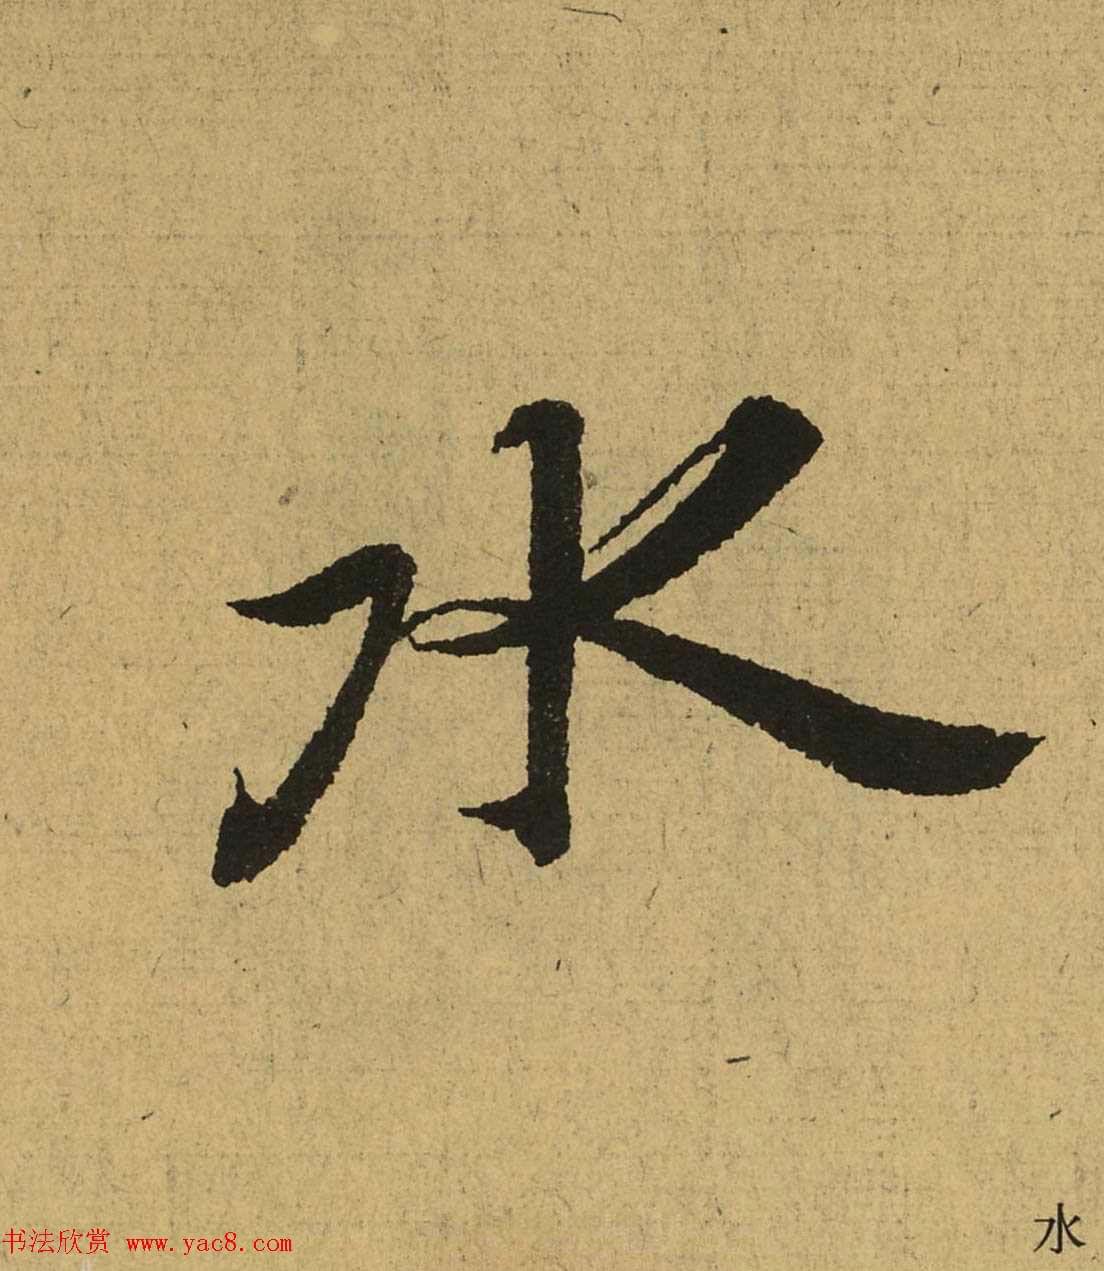 水
水
书法欣赏 www.yac8.com